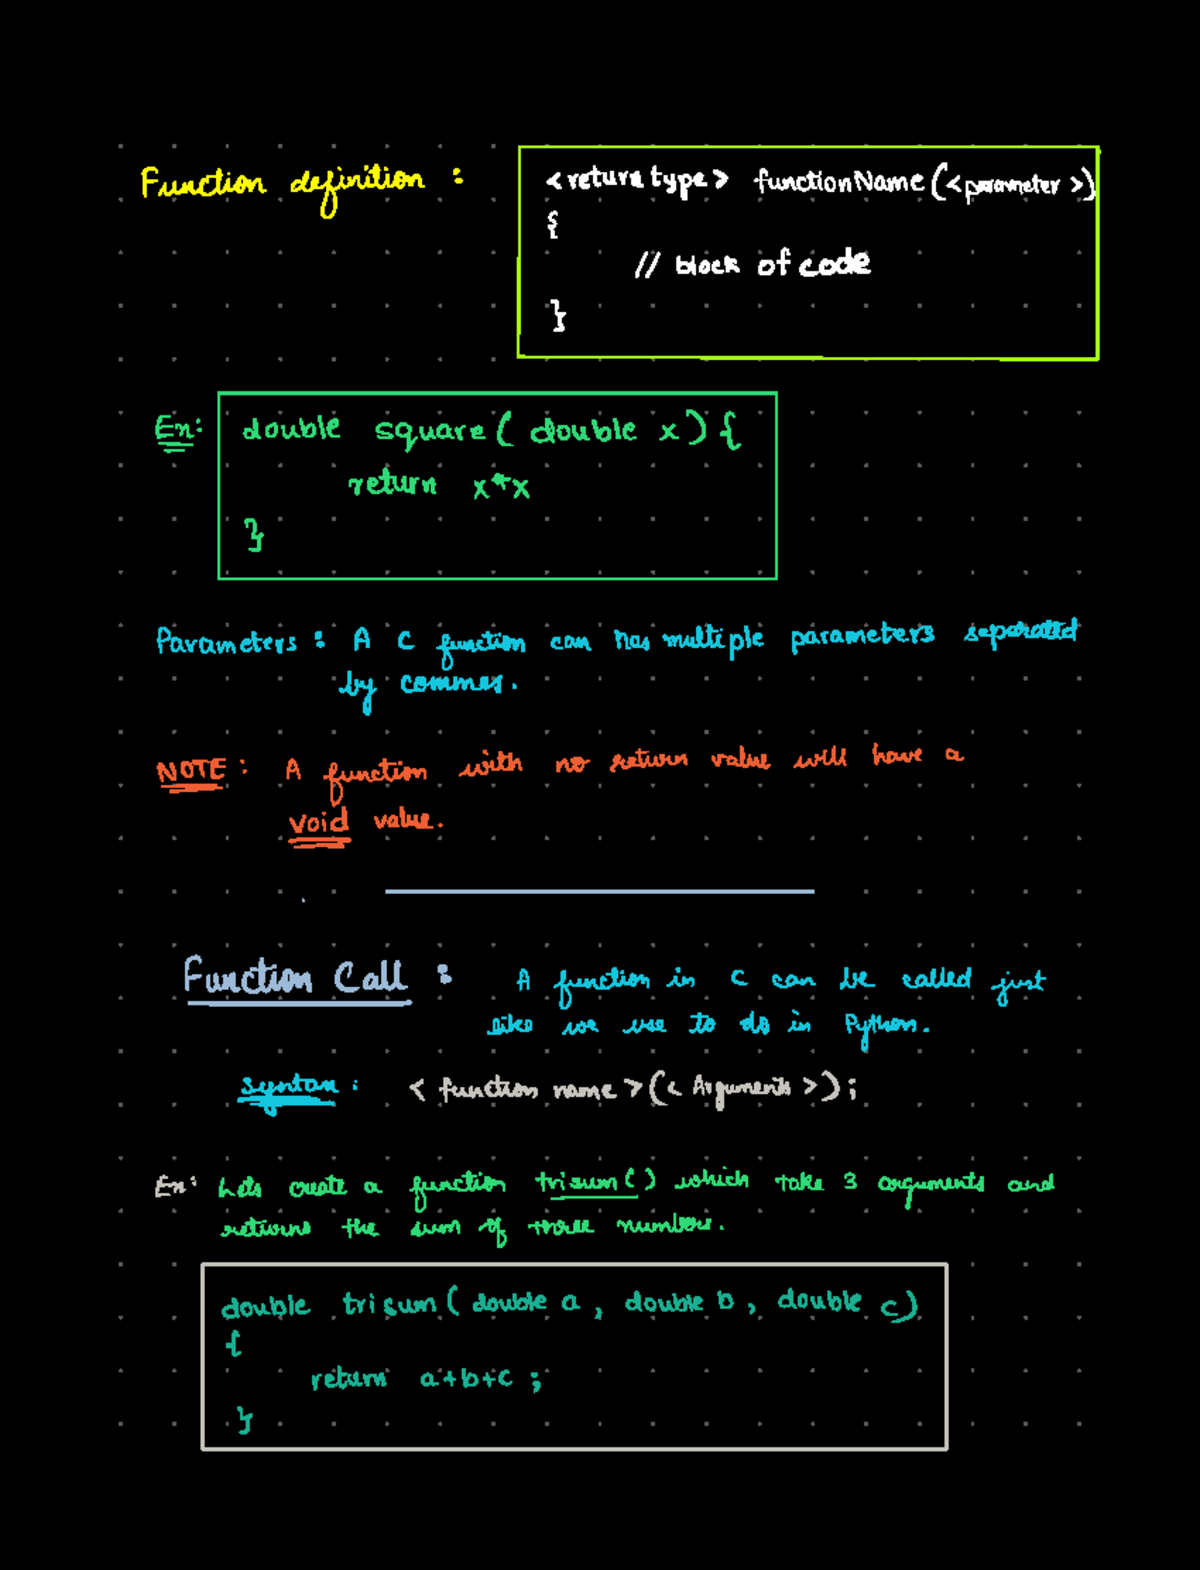 Function definition : <return type> functionName(<parameter>)
{
// block of code
}
Ex: double square( double x){
return x*x
}
Parameters : A C function can has multiple parameters separated
by commas.
NOTE : A function with no return value will have a
void value.
Function Call : A function in C can be called just
like we use to do in Python.
Syntax : < function name >(< Arguments >);
Ex: Lets create a function trisum() which take 3 arguments and
returns the sum of three numbers.
double trisum( double a, double b, double c)
{
return a+b+c ;
}